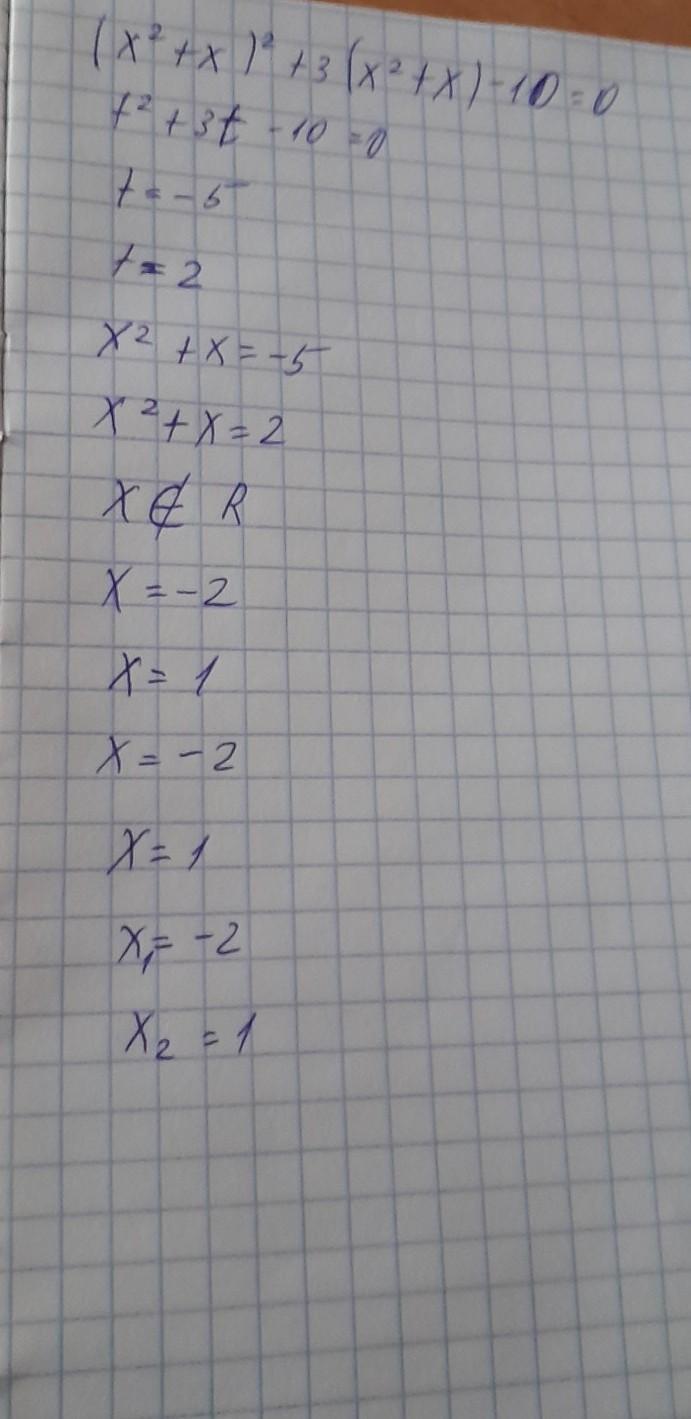 (x² + x)² + 3(x² + x) - 10 = 0
t² + 3t - 10 = 0
t = -5
t = 2
x² + x = -5
x² + x = 2
x ∉ R
x = -2
x = 1
x = -2
x = 1
x₁ = -2
x₂ = 1